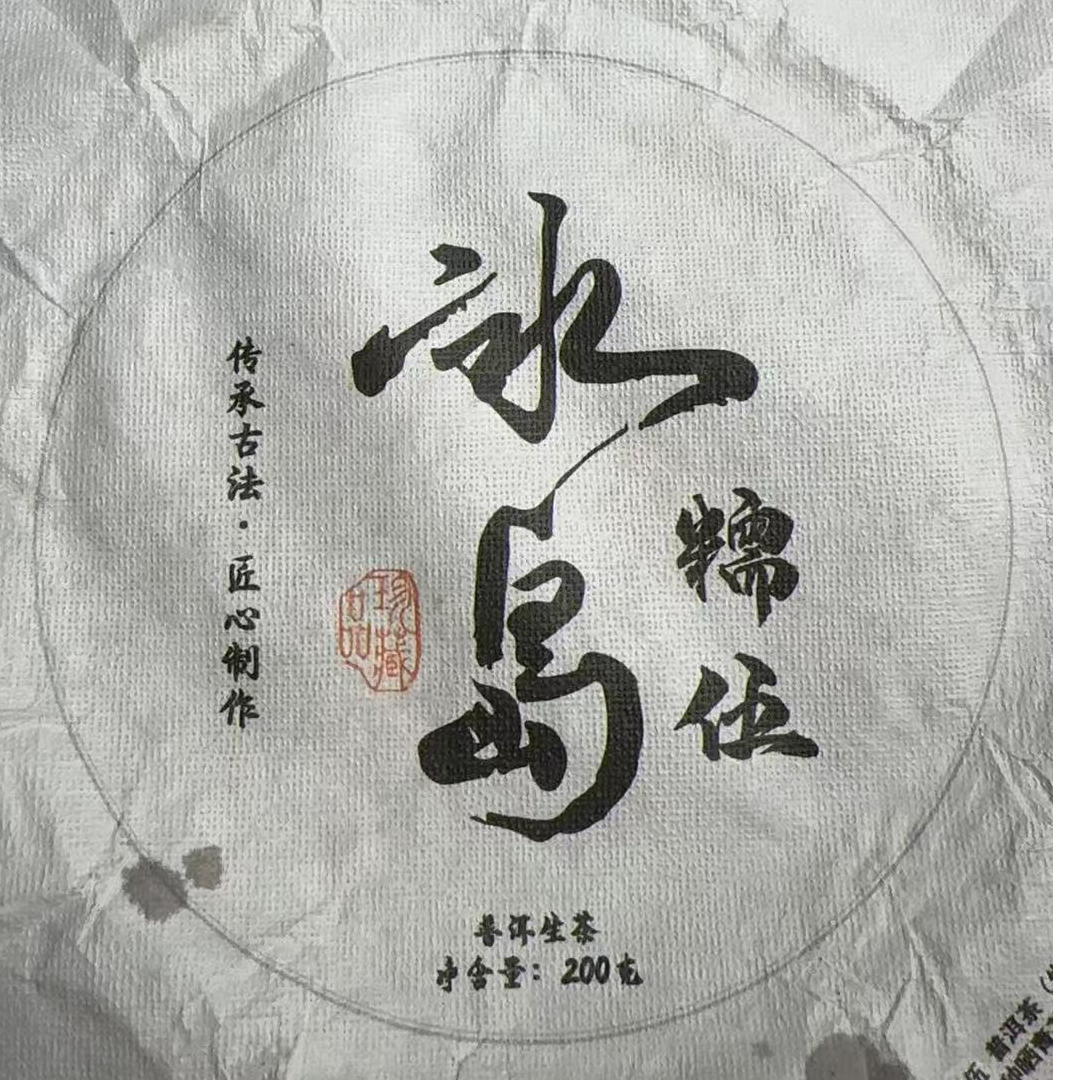 冰岛
糯伍
传承古法·匠心制作
珍藏品
普洱生茶
净含量：200克
伍 普洱茶（
种晒青